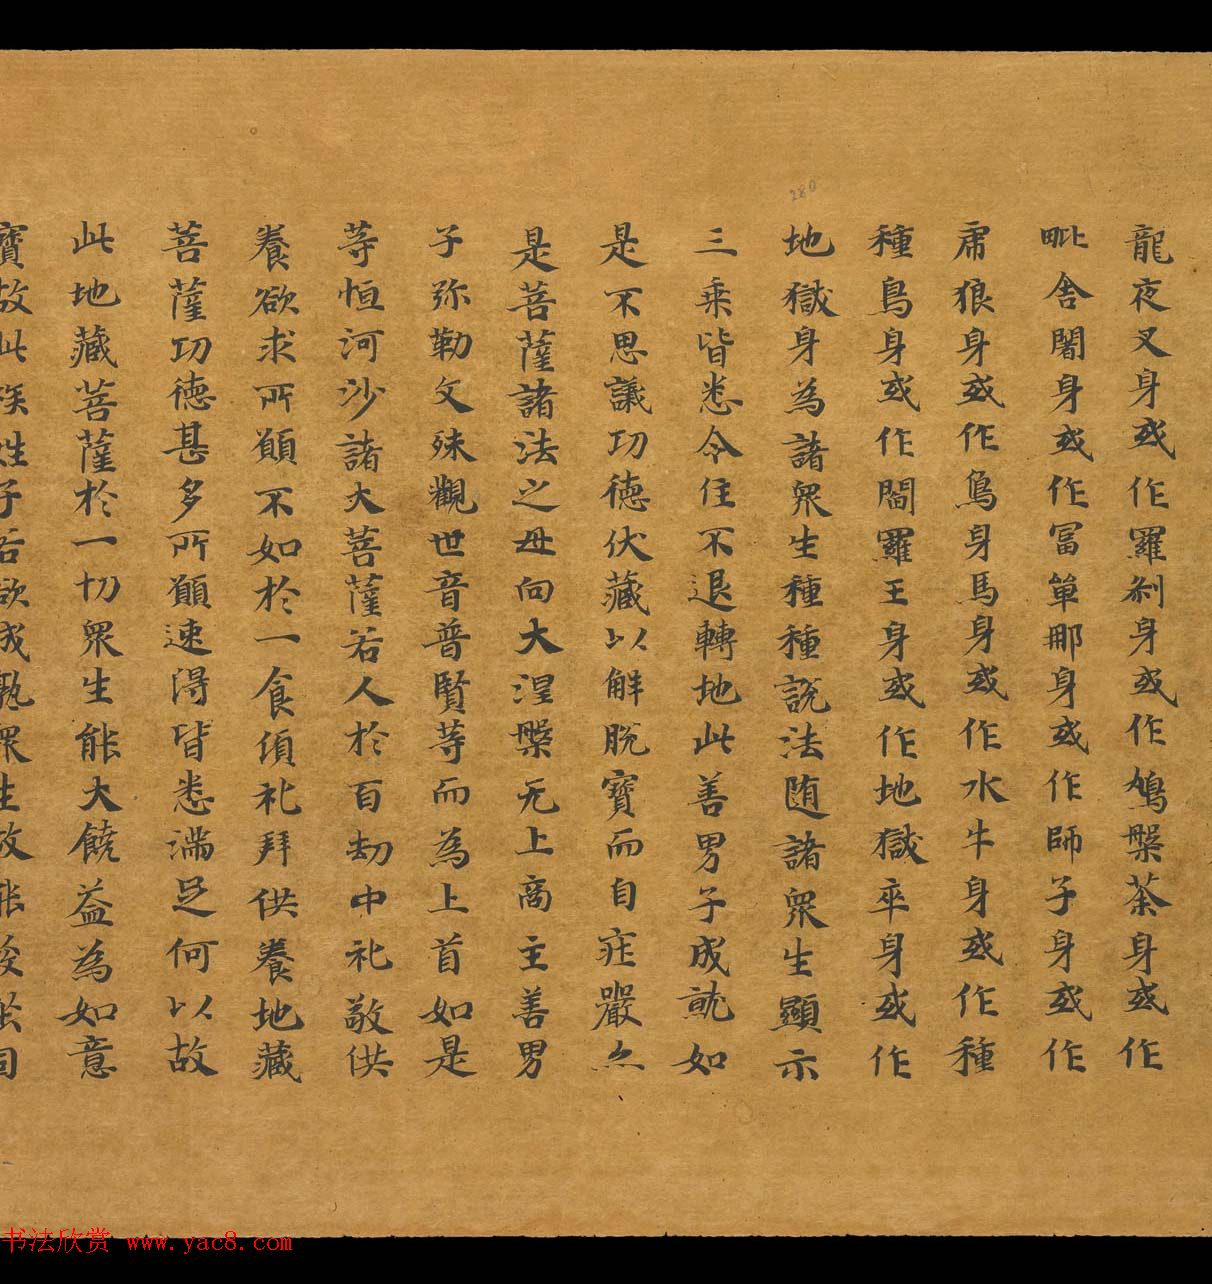 龍夜叉身或作羅刹身或作鳩槃茶身或作
毗舍闍身或作富單那身或作師子身或作
虎狼身或作烏身馬身或作水牛身或作種
種鳥身或作閻羅王身或作地獄卒身或作
地獄身為諸眾生種種說法随諸眾生顯示
三乘皆悉令住不退轉地此善男子成就如
是不思議功德伏藏以解脫寶而自庄嚴尒
是菩薩諸法之母向大涅槃无上商主善男
子弥勒文殊觀世音普賢等而為上首如是
等恒河沙諸大菩薩若人於百劫中礼敬供
養欲求所願不如於一食須礼拜供養地藏
菩薩功德甚多所願速得皆悉滿足何以故
此地藏菩薩於一切眾生能大饒益為如意
寶故此族姓子若欲成孰眾生故
280
书法欣赏 www.yac8.com